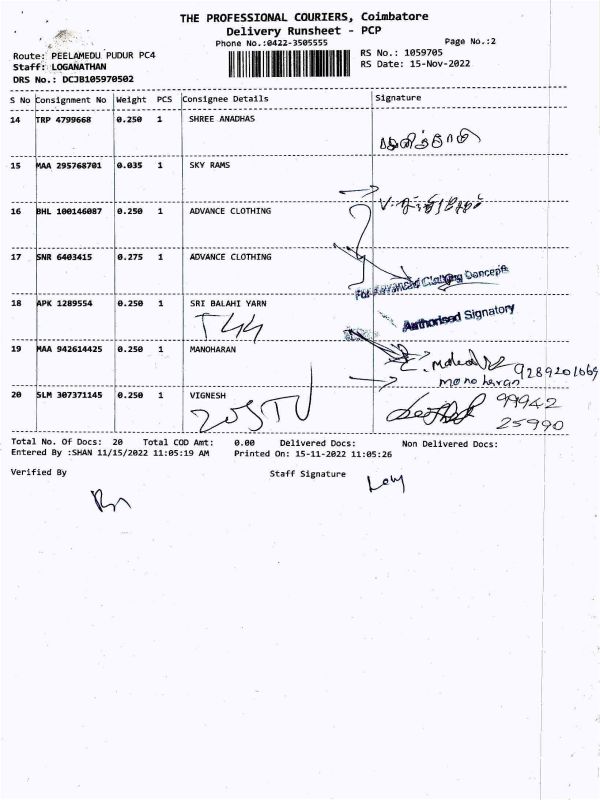 THE PROFESSIONAL COURIERS, Coimbatore
Delivery Runsheet - PCP
Phone No.:0422-3505555
Page No.:2
Route: PEELAMEDU PUDUR PC4
RS No.: 1059705
Staff: LOGANATHAN
RS Date: 15-Nov-2022
DRS No.: DCJB105970502
S No Consignment No Weight PCS Consignee Details Signature
14 TRP 4799668 0.250 1 SHREE ANADHAS
15 MAA 295768701 0.035 1 SKY RAMS
16 BHL 100146087 0.250 1 ADVANCE CLOTHING
17 SNR 6403415 0.275 1 ADVANCE CLOTHING
For Advanced Clothing Concepts
18 APK 1289554 0.250 1 SRI BALAHI YARN
Authorised Signatory
19 MAA 942614425 0.250 1 MANOHARAN
manoharan
20 SLM 307371145 0.250 1 VIGNESH
99942
25990
Total No. Of Docs: 20 Total COD Amt: 0.00 Delivered Docs: Non Delivered Docs:
Entered By :SHAN 11/15/2022 11:05:19 AM Printed On: 15-11-2022 11:05:26
Verified By Staff Signature